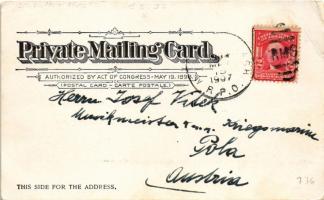 Private Mailing Card.
AUTHORIZED BY ACT OF CONGRESS-MAY 19, 1898.
(POSTAL CARD - CARTE POSTALE.)
1907
R.P.O.
RMS
Herrn Josef Vitek
Musikmeister Kriegsmarine
Pola
Austria
THIS SIDE FOR THE ADDRESS.
736